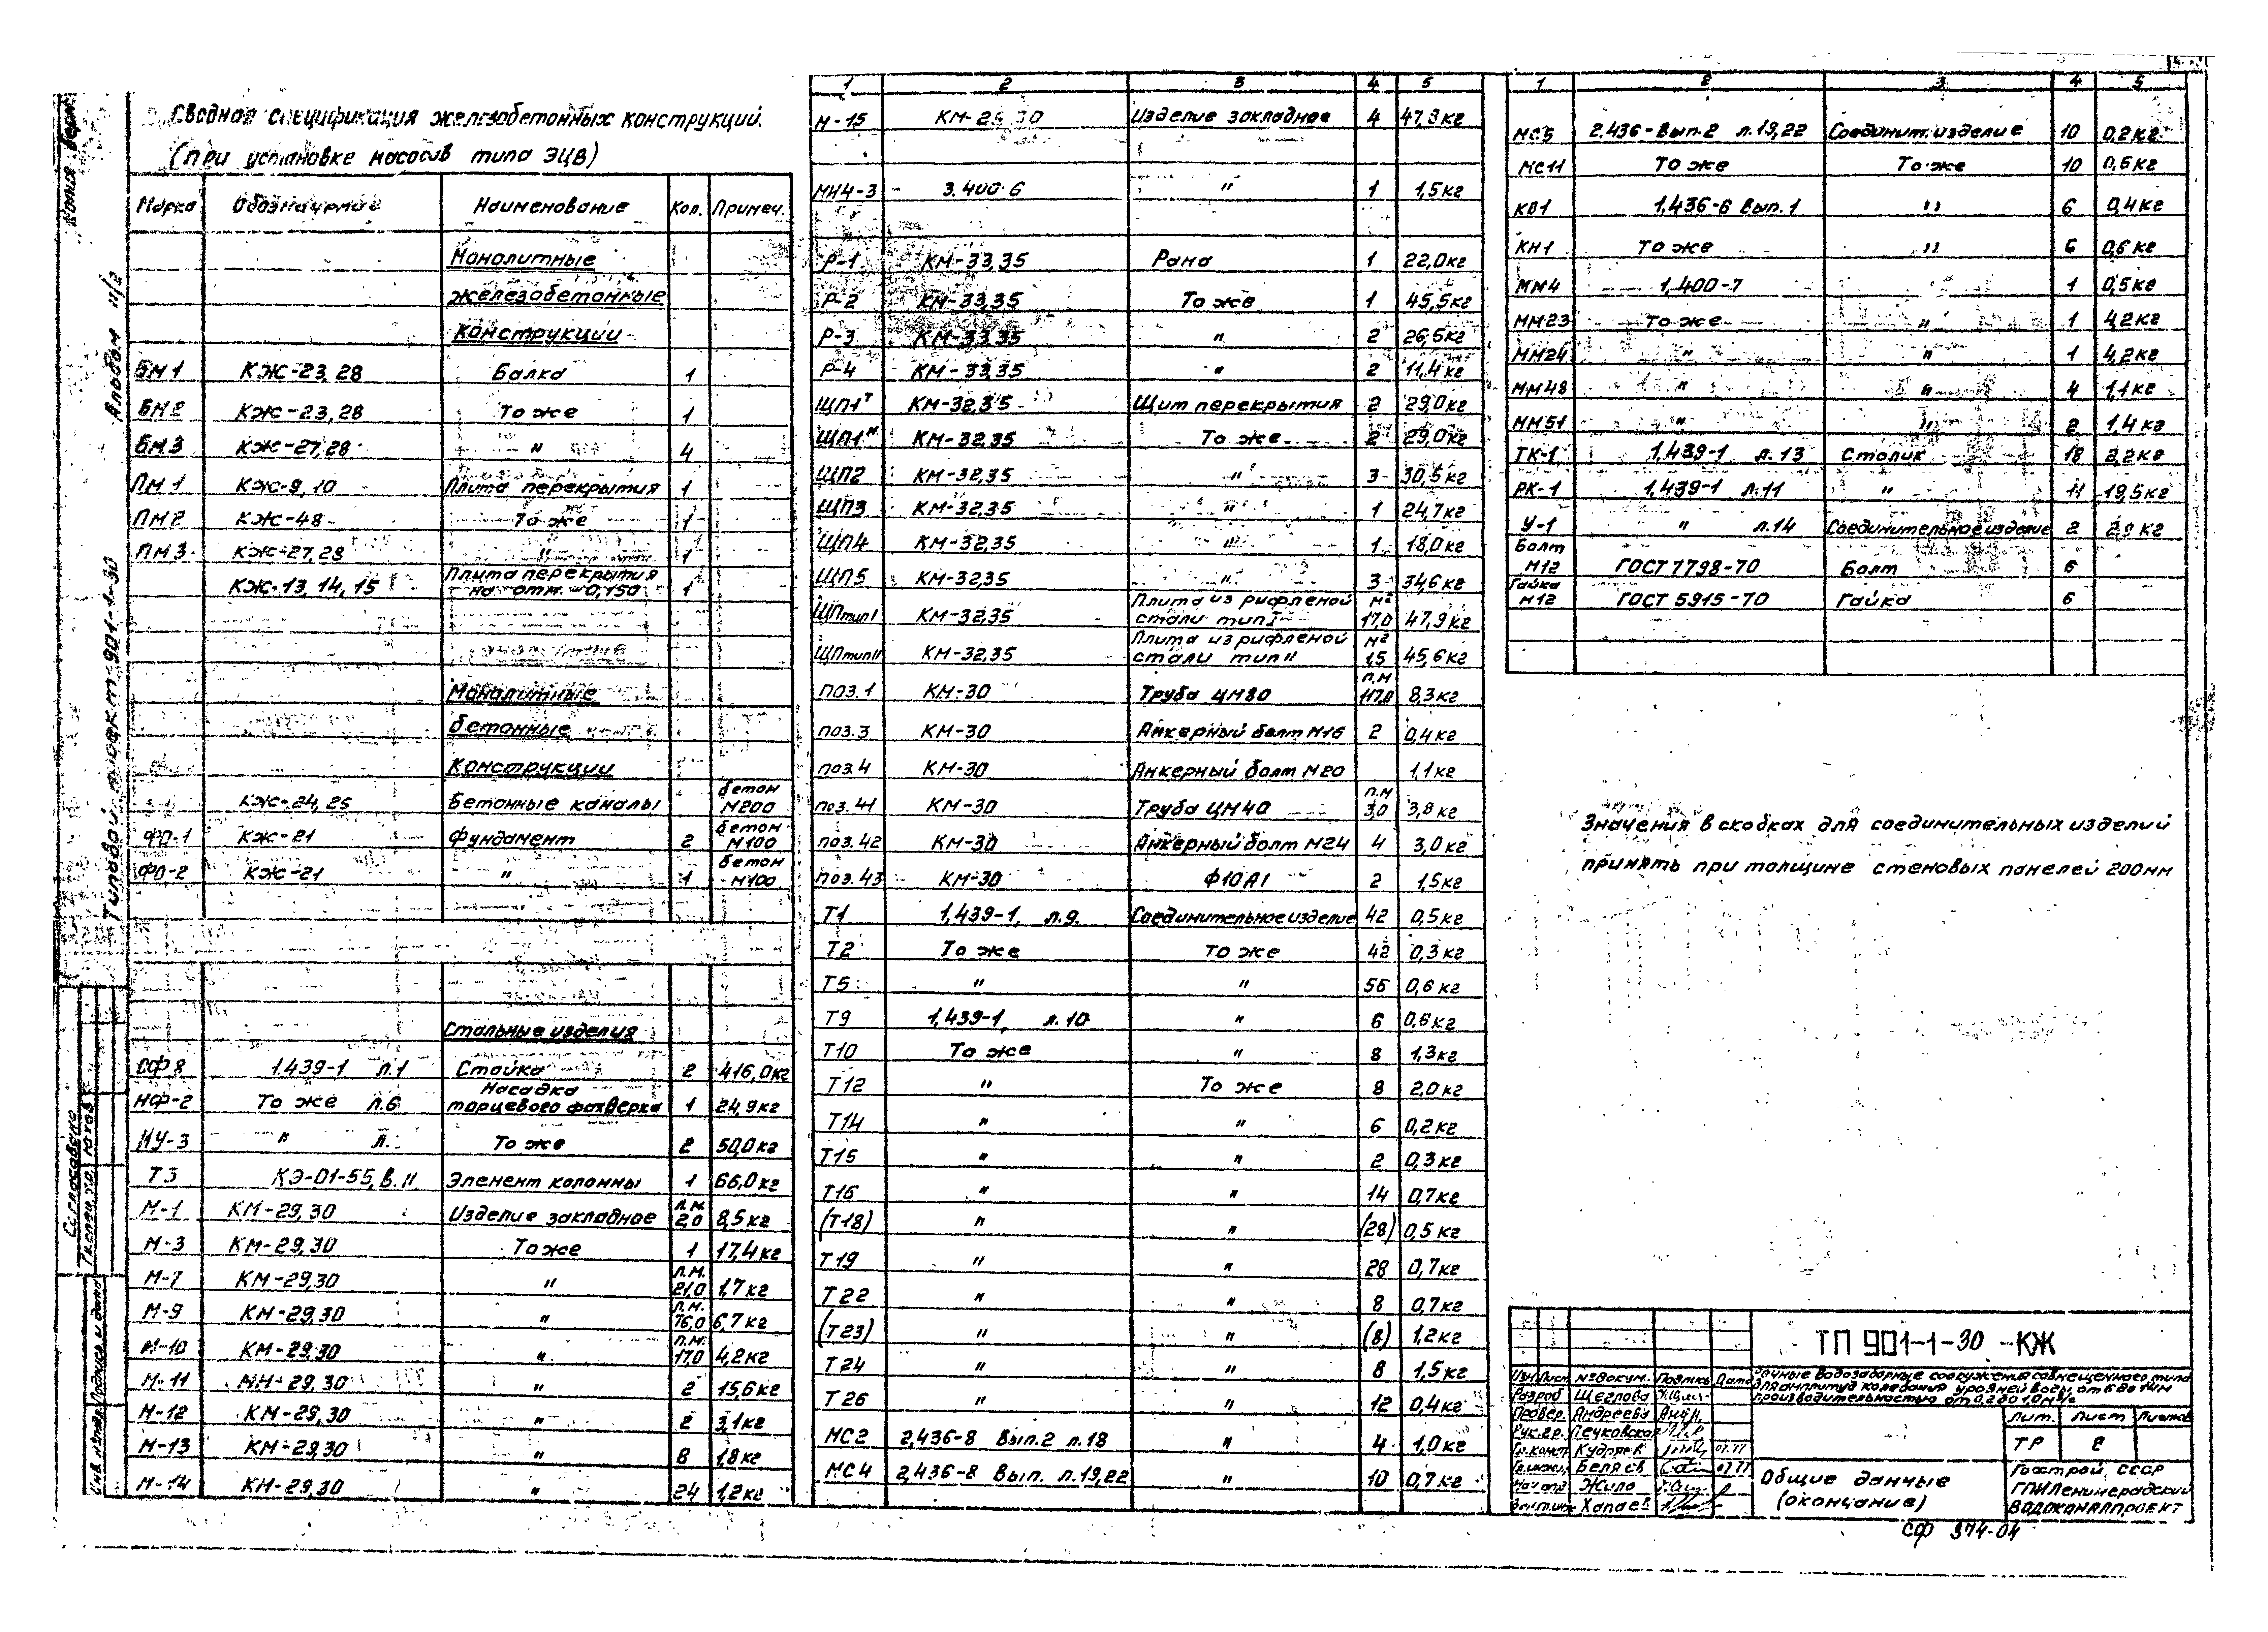 Сводная спецификация железобетонных конструкций.
(при установке насосов типа ЭЦВ)
Марка Обозначение Наименование Кол. Примеч.
Монолитные
железобетонные
конструкции
БМ1 КЖ-23,28 Балка 1
БМ2 КЖ-23,28 То же 1
БМ3 КЖ-27,28 " 4
ПМ1 КЖ-9,10 Плита перекрытия 1
ПМ2 КЖ-48 То же 1
ПМ3 КЖ-27,28 " 1
Плита перекрытия
КЖ-13,14,15 на отм. -0,150 1
Монолитные
бетонные
конструкции
бетон
КЖ-24,25 Бетонные каналы М200
бетон
ФО-1 КЖ-21 Фундамент 2 М100
бетон
ФО-2 КЖ-21 " 1 М100
Стальные изделия
СФ8 1.439-1 л.1 Стойка 2 416,0кг
Насадка
НФ-2 То же л.6 торцевого фахверка 1 24,9кг
НУ-3 " л. То же 2 50,0кг
Т3 КЭ-01-55, в.II Элемент колонны 1 66,0кг
п.м.
М-1 КМ-29,30 Изделие закладное 2,0 8,5кг
М-3 КМ-29,30 То же 1 17,4кг
п.м.
М-7 КМ-29,30 " 21,0 1,7кг
п.м.
М-9 КМ-29,30 " 76,0 6,7кг
п.м.
М-10 КМ-29,30 " 17,0 4,2кг
М-11 МН-29,30 " 2 15,6кг
М-12 КМ-29,30 " 2 3,1кг
М-13 КМ-29,30 " 8 1,8кг
М-14 КМ-29,30 " 24 1,2кг
1 2 3 4 5
М-15 КМ-29,30 Изделие закладное 4 47,3кг
МН4-3 3.400-6 " 1 1,5кг
Р-1 КМ-33,35 Рама 1 22,0кг
Р-2 КМ-33,35 То же 1 45,5кг
Р-3 КМ-33,35 " 2 26,5кг
Р-4 КМ-33,35 " 2 11,4кг
ЩП1т КМ-32,35 Щит перекрытия 2 29,0кг
ЩП1н КМ-32,35 То же 2 29,0кг
ЩП2 КМ-32,35 " 3 30,5кг
ЩП3 КМ-32,35 " 1 24,7кг
ЩП4 КМ-32,35 " 1 18,0кг
ЩП5 КМ-32,35 " 3 34,6кг
Плита из рифленой м²
ЩПтип I КМ-32,35 стали тип I 17,0 47,9кг
Плита из рифленой м²
ЩПтип II КМ-32,35 стали тип II 1,5 45,6кг
п.м
поз.1 КМ-30 Труба ЦМ80 117,0 8,3кг
поз.3 КМ-30 Анкерный болт М16 2 0,4кг
поз.4 КМ-30 Анкерный болт М20 1,1кг
п.м
поз.41 КМ-30 Труба ЦМ40 3,0 3,8кг
поз.42 КМ-30 Анкерный болт М24 4 3,0кг
поз.43 КМ-30 Ф10АI 2 1,5кг
Т1 1,439-1, л.9. Соединительное изделие 42 0,5кг
Т2 То же То же 42 0,3кг
Т5 " " 56 0,6кг
Т9 1,439-1, л.10 " 6 0,6кг
Т10 То же " 8 1,3кг
Т12 " То же 8 2,0кг
Т14 " " 6 0,2кг
Т15 " " 2 0,3кг
Т16 " " 14 0,7кг
(Т18) " " (28) 0,5кг
Т19 " " 28 0,7кг
Т22 " " 8 0,7кг
(Т23) " " (8) 1,2кг
Т24 " " 8 1,5кг
Т26 " " 12 0,4кг
МС2 2,436-8 Вып.2 л.18 " 4 1,0кг
МС4 2,436-8 Вып. л.19,22 " 10 0,7кг
1 2 3 4 5
МС5 2,436-Вып.2 л.19,22 Соединит. изделие 10 0,2кг
МС11 То же То же 10 0,6кг
КВ1 1,436-6 Вып.1 " 6 0,4кг
КН1 То же " 6 0,6кг
ММ4 1,400-7 1 0,5кг
ММ23 То же " 1 4,2кг
ММ24 " " 1 4,2кг
ММ48 " " 4 1,1кг
ММ51 " " 2 1,4кг
ТК-1 1,439-1 л.13 Столик 18 2,2кг
РК-1 1,439-1 л.11 " 11 19,5кг
У-1 " л.14 Соединительное изделие 2 2,9кг
Болт
М12 ГОСТ 7798-70 Болт 6
Гайка
М12 ГОСТ 5915-70 Гайка 6
Значения в скобках для соединительных изделий
принять при толщине стеновых панелей 200мм
ТП 901-1-30 -КЖ
Речные водозаборные сооружения совмещенного типа
для амплитуд колебания уровней воды от 6 до 14м
производительностью от 0,2 до 1,0м³/с
Изм Лист № докум. Подпись Дата
Разраб Щеглова
Провер. Андреева
Рук.гр. Печковская
Гл.конст. Кудряев 07.77
Гл.инж. Беляев 07.77
Нач отд Жила
Хапаев
Лит. Лист Листов
ТР 8
Общие данные
(окончание)
Госстрой СССР
ГПИ Ленинградский
ВОДОКАНАЛПРОЕКТ
СФ 374-04
Копия верна
Типовой проект 901-1-30 Альбом II/3
Согласовано
Гл.спец. т.о.
Инв. № подл. Подпись и дата